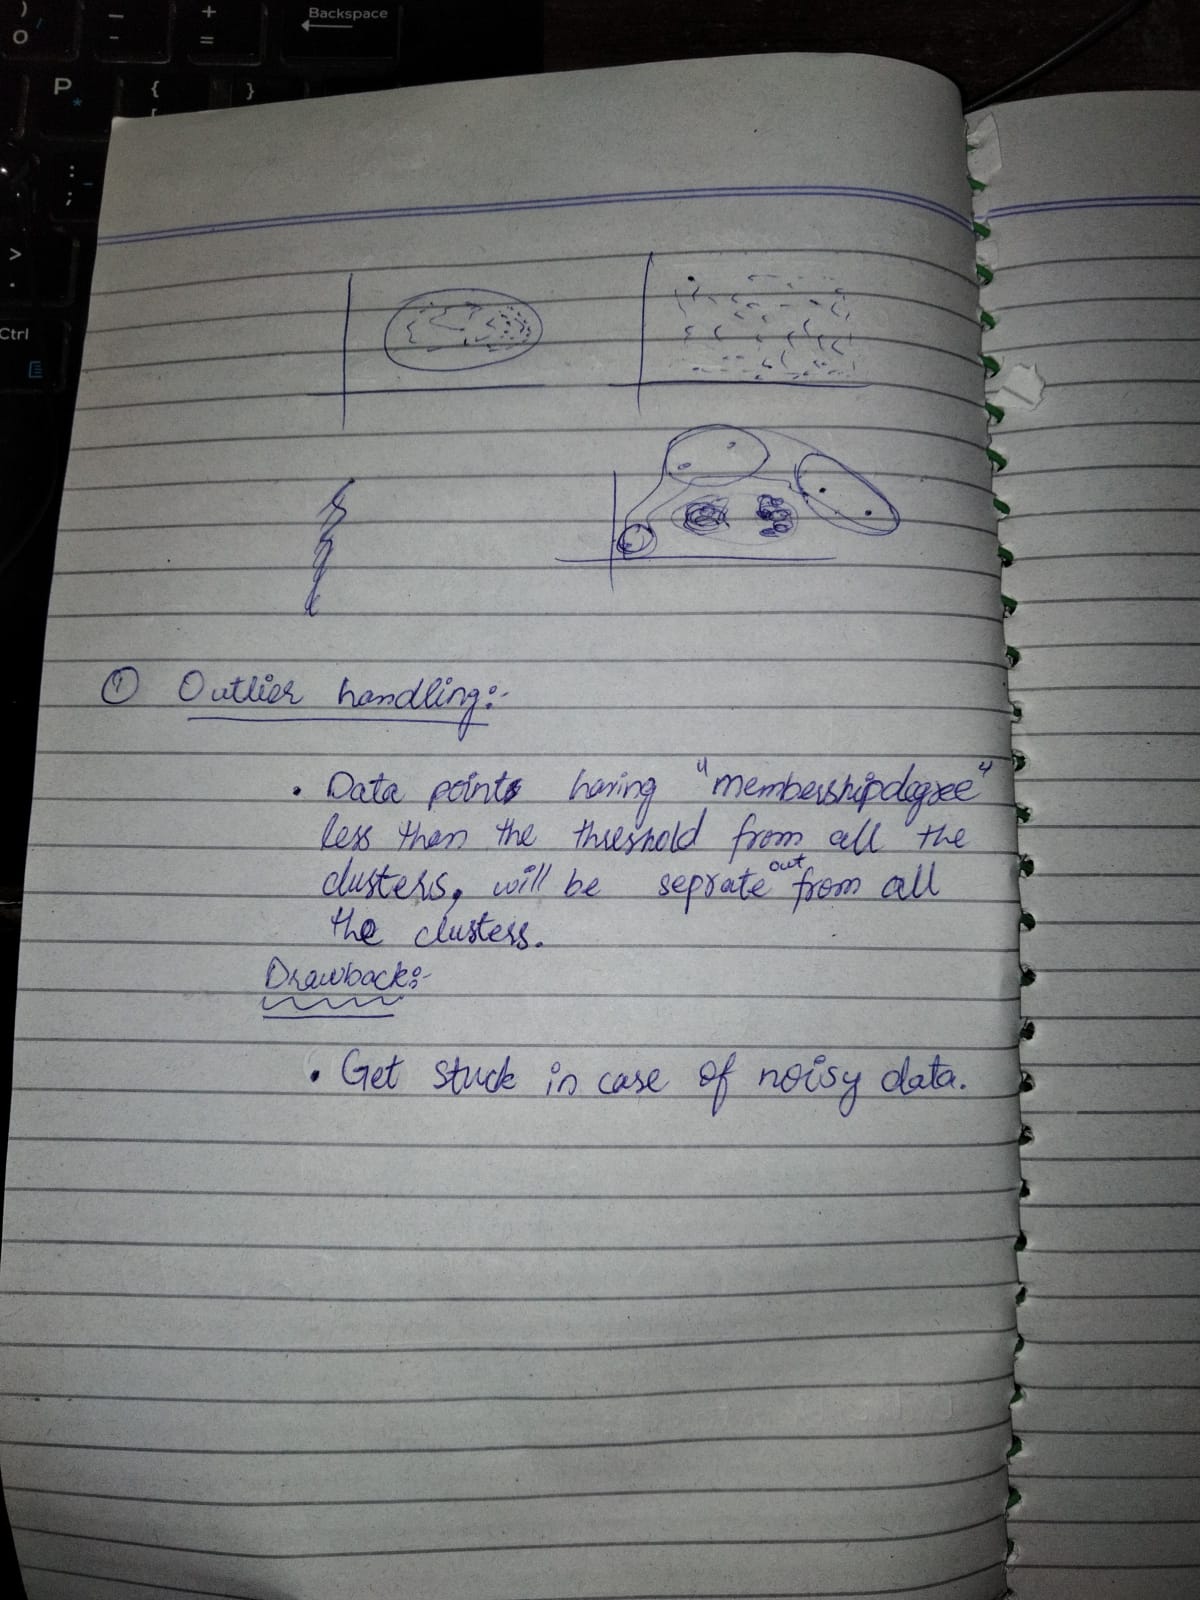 )
0
_
-
+
=
Backspace
P
{
[
}
:
;
>
.
Ctrl
① Outlier handling:-
• Data points having "membershipdegree"
less than the threshold from all the
clusters, will be seprate out from all
the clusters.
Drawback:-
• Get stuck in case of noisy data.